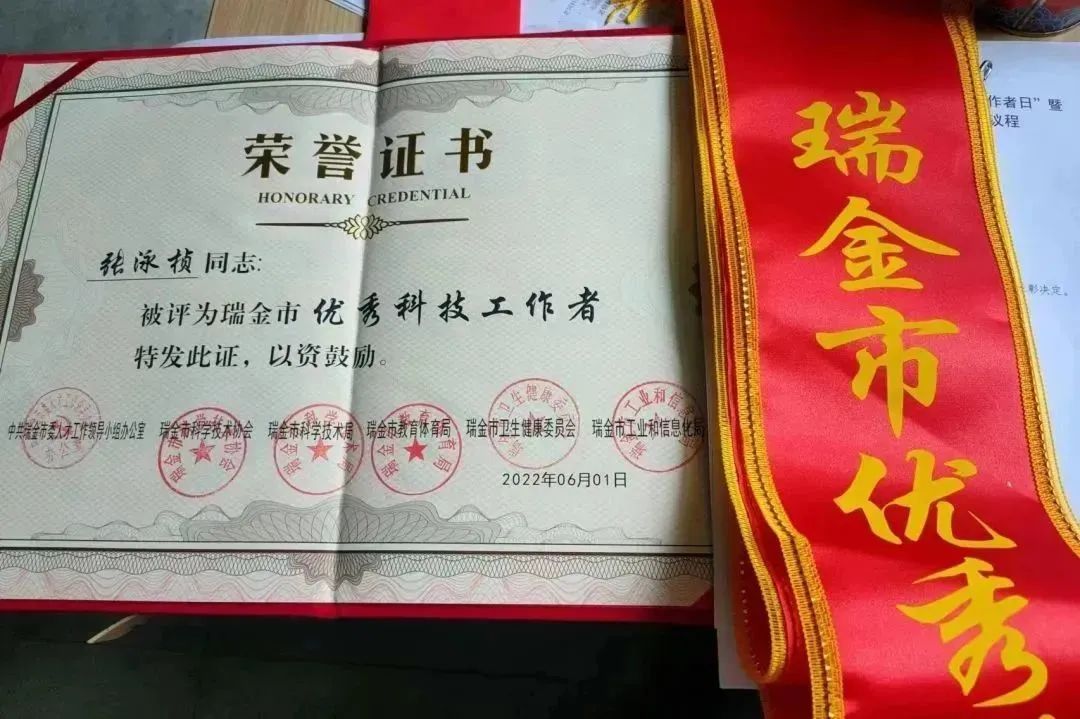 荣誉证书
HONORARY CREDENTIAL
张泳桢同志:
被评为瑞金市 优秀科技工作者
特发此证，以资鼓励。
中共瑞金市委人才工作领导小组办公室 瑞金市科学技术协会 瑞金市科学技术局 瑞金市教育体育局 瑞金市卫生健康委员会 瑞金市工业和信息化局
2022年06月01日
瑞金市优秀
作者日”暨
议程
彰决定。